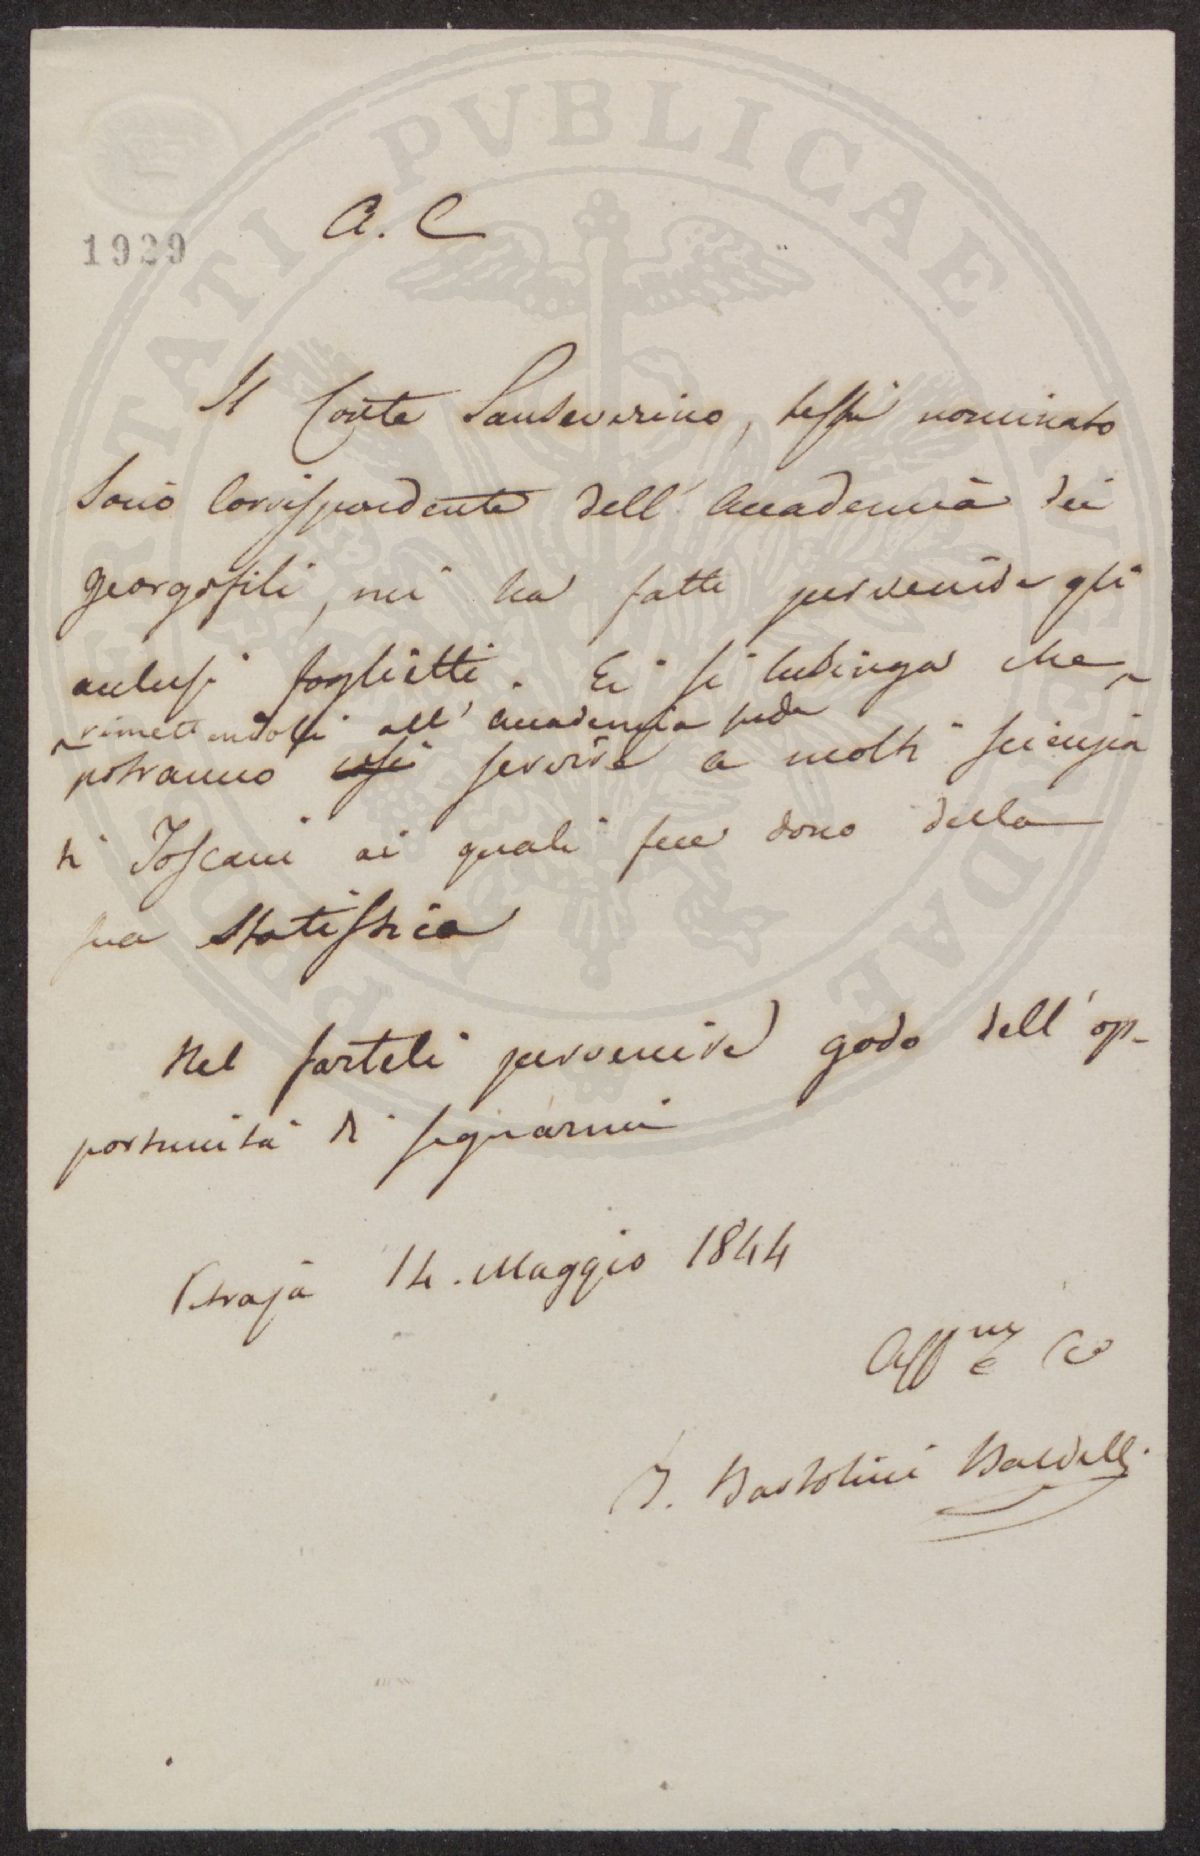 PROSPERITATI PVBLICAE AVGENDAE
1929
A. C
Il Conte Sanseverino, testè nominato
Socio Corrispondente dell' Accademia dei
georgofili, mi ha fatti pervenire gli
acclusi foglietti. Ei si lusinga che
rimettendoli all' accademia
potranno servire a molti scienzia
ti Toscani ai quali fece dono della
sua Statistica
Nel farteli pervenire godo dell' op-
portunità di segnarmi
Petraja 14. Maggio 1844
Affmo
Bartolini Baldelli